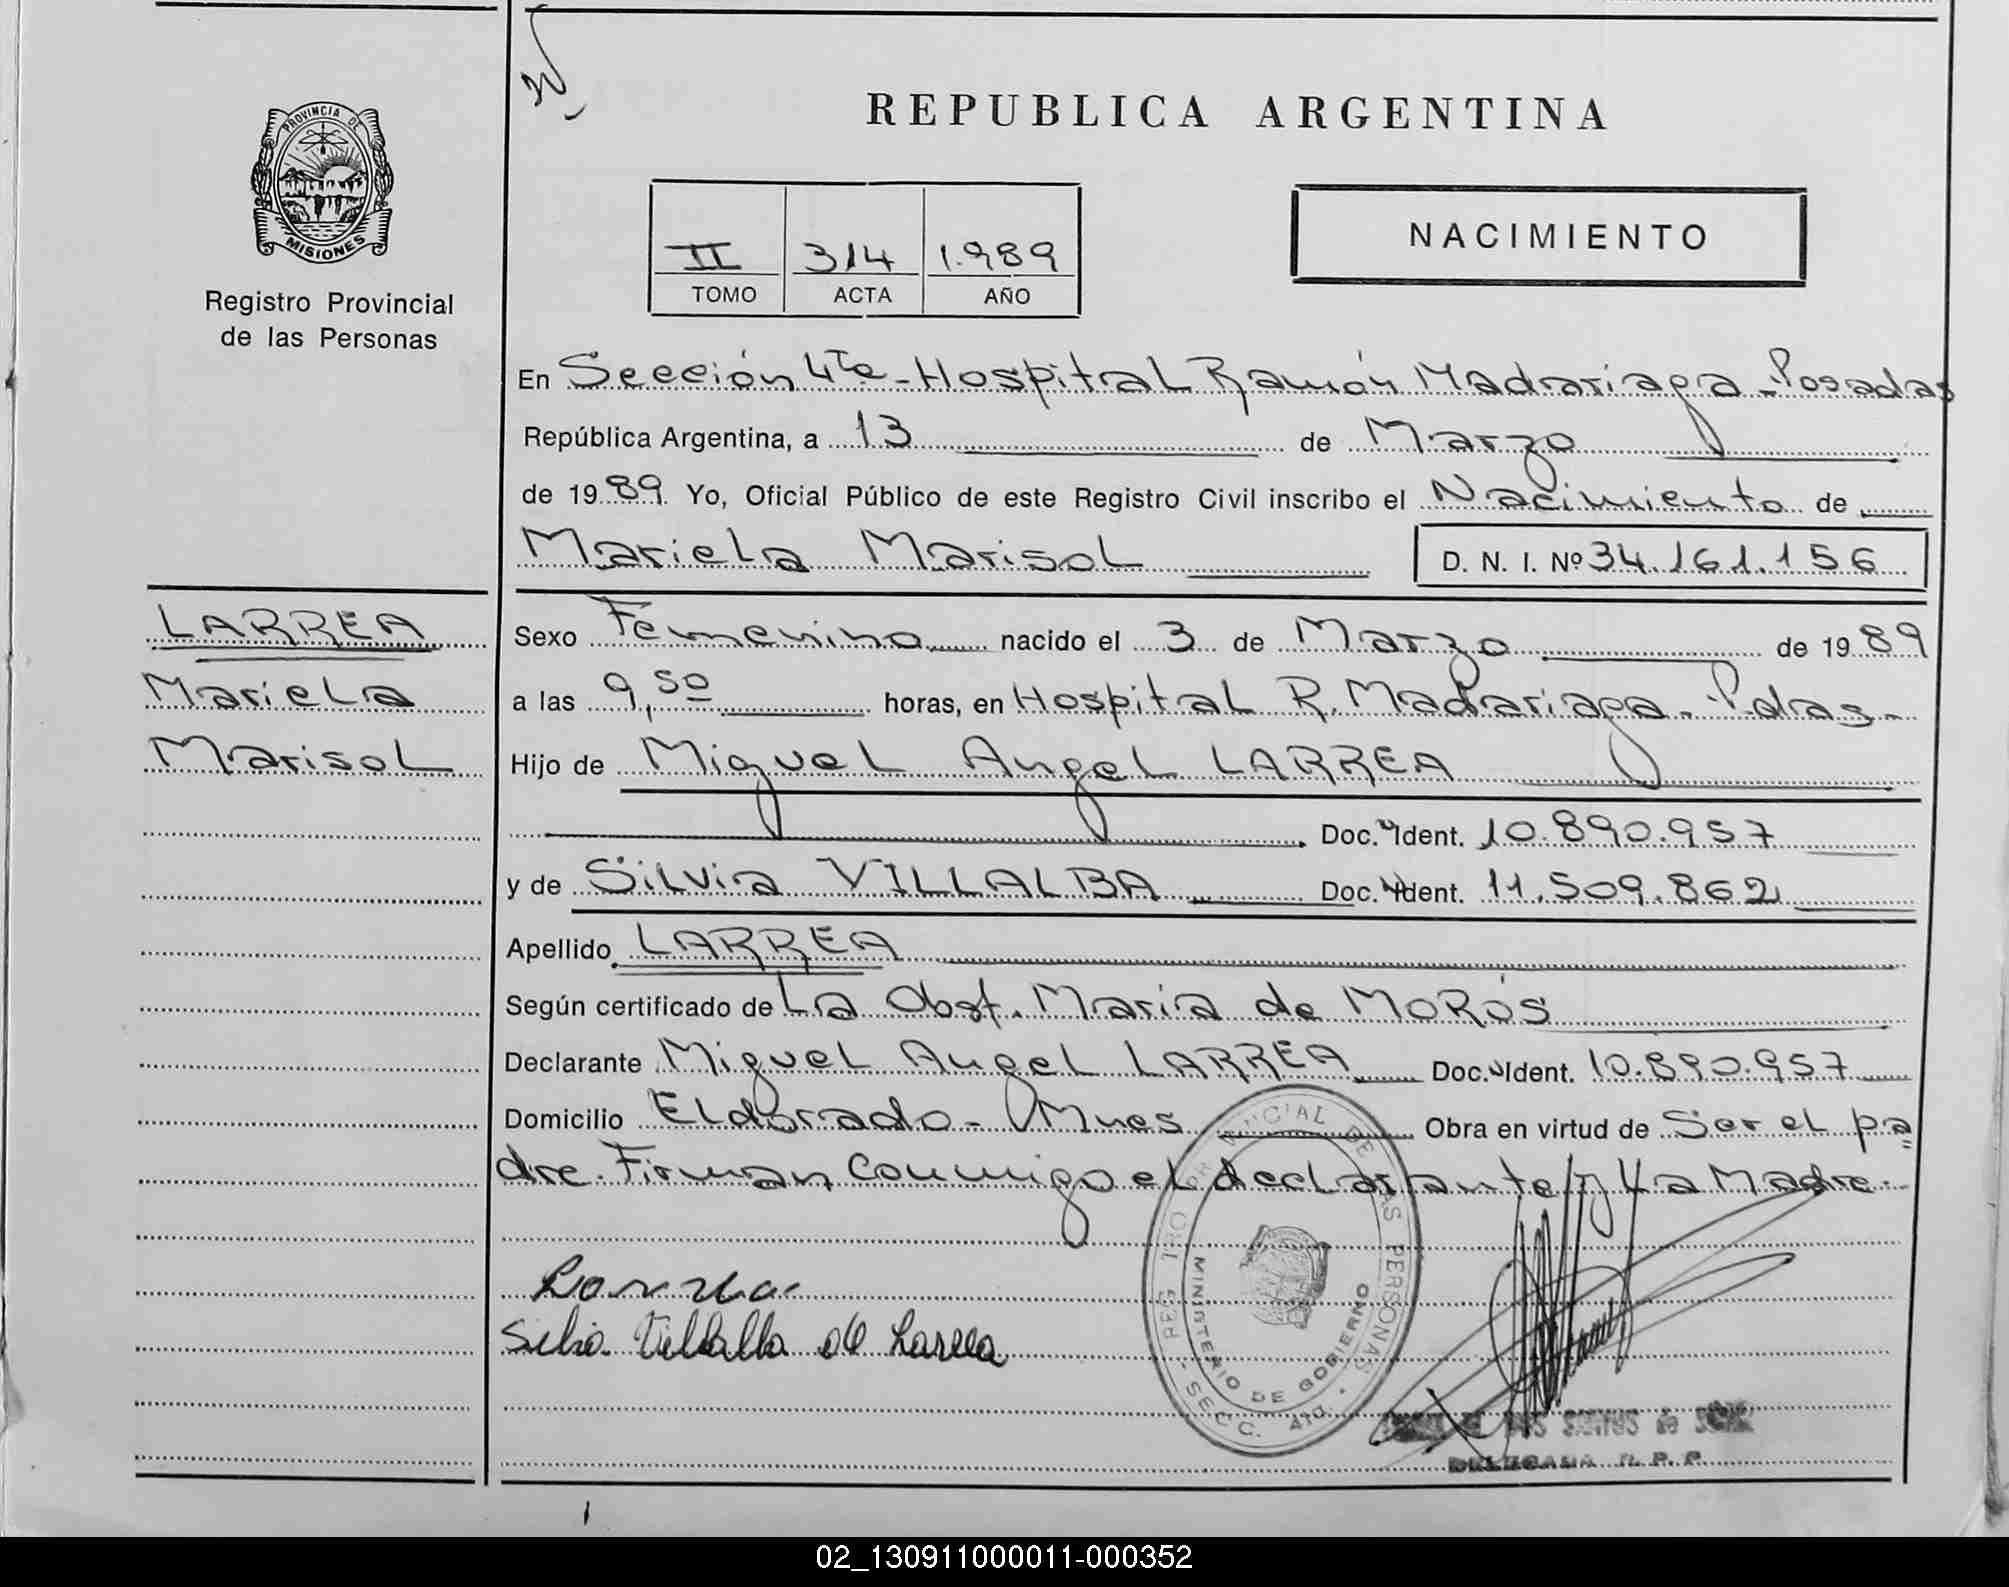 PROVINCIA DE
MISIONES
Registro Provincial
de las Personas
LARREA
Mariela
Marisol
REPUBLICA ARGENTINA
II 314 1.989
TOMO ACTA AÑO
NACIMIENTO
En Sección 4ta - Hospital Ramón Madariaga - Posadas
República Argentina, a 13 de Marzo
de 1989 Yo, Oficial Público de este Registro Civil inscribo el Nacimiento de
Mariela Marisol D. N. I. Nº 34.161.156
Sexo Femenino nacido el 3 de Marzo de 1989
a las 9,50 horas, en Hospital R. Madariaga - Pdas -
Hijo de Miguel Angel LARREA
Doc. Ident. 10.890.957
y de Silvia VILLALBA Doc. Ident. 11.509.862
Apellido LARREA
Según certificado de La Obst. Maria de MoRós
Declarante Miguel Angel LARREA Doc. Ident. 10.890.957
Domicilio Eldorado - Mnes Obra en virtud de Ser el pa=
dre. Firman Conmigo el declarante y La Madre.-
Larrea
Silvia Villalba de Larrea
REG TRO PROVINCIAL DE LAS PERSONAS
MINISTERIO DE GOBIERNO
- SECC. 4ta. -
DOS SANTOS de
DELEGADA R. P. P.
02_130911000011-000352